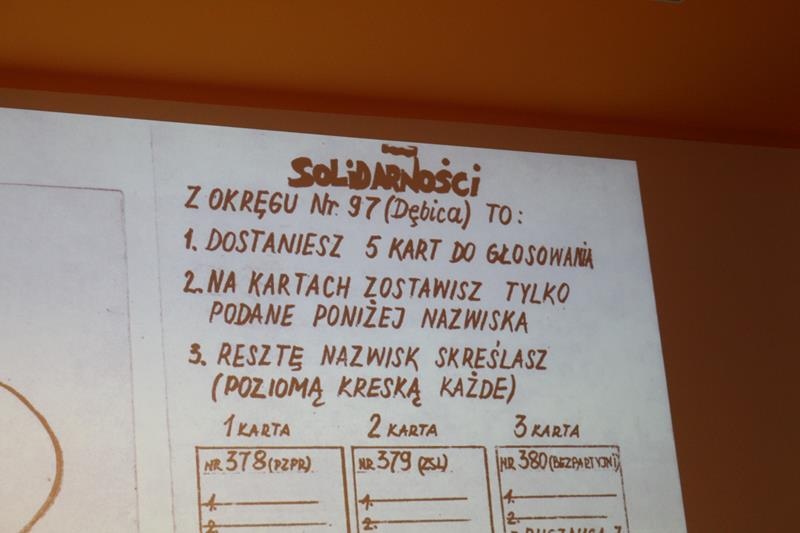 SOLiDARNOŚCi
Z OKRĘGU Nr. 97 (Dębica) TO:
1. DOSTANIESZ 5 KART DO GŁOSOWANIA
2. NA KARTACH ZOSTAWISZ TYLKO
PODANE PONIŻEJ NAZWISKA
3. RESZTĘ NAZWISK SKREŚLASZ
(POZIOMĄ KRESKĄ KAŻDE)
1 KARTA 2 KARTA 3 KARTA
NR 378 (PZPR) NR 379 (ZSL) NR 380 (BEZPARTYJNI)
1. 1. 1.
2. 2. 2.